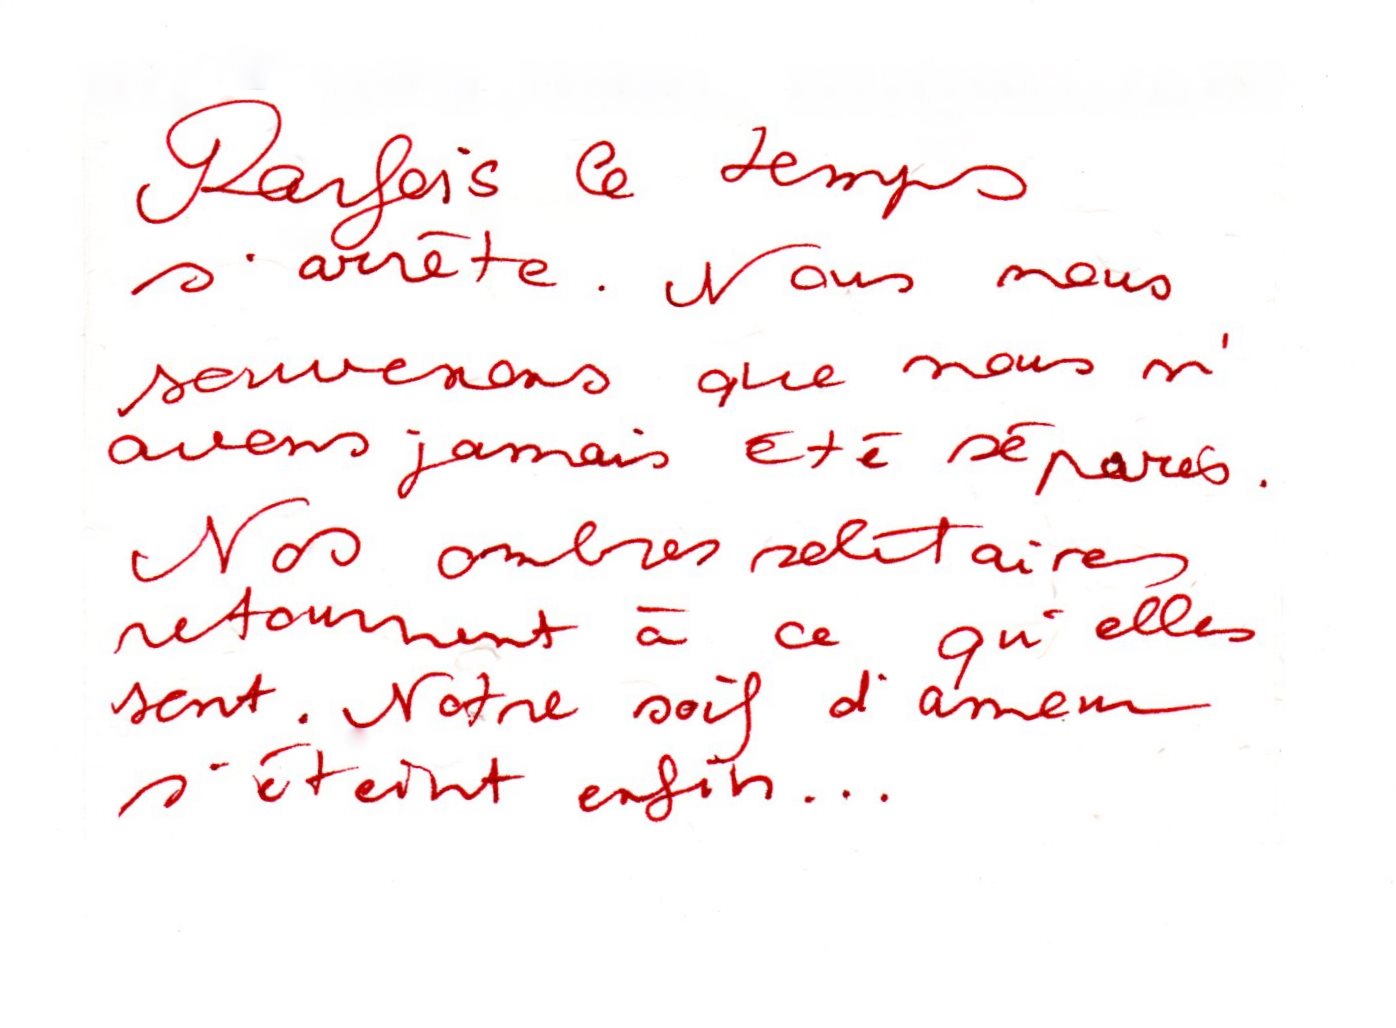 Parfois le temps
s'arrête. Nous nous
souvenons que nous n'
avons jamais été séparés.
Nos ombres solitaires
retournent à ce qu'elles
sont. Notre soif d'amour
s'éteint enfin...